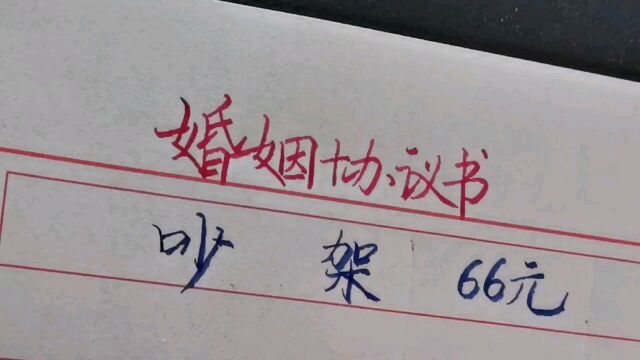 婚姻协议书
吵 架 66元